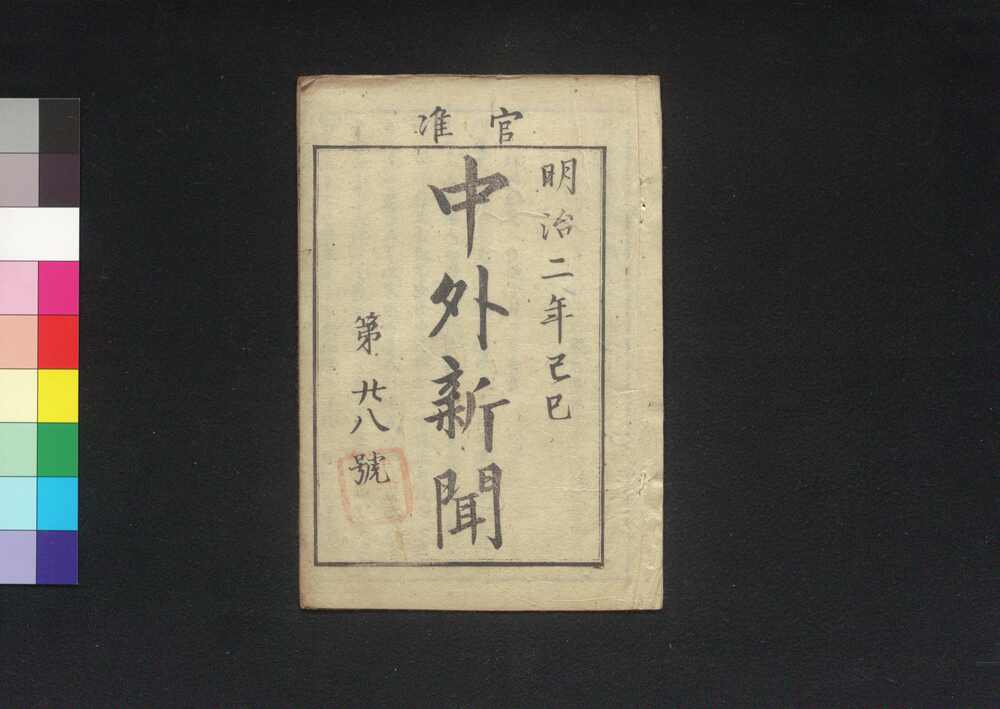 官准
明治二年己巳
中外新聞
第廿八號